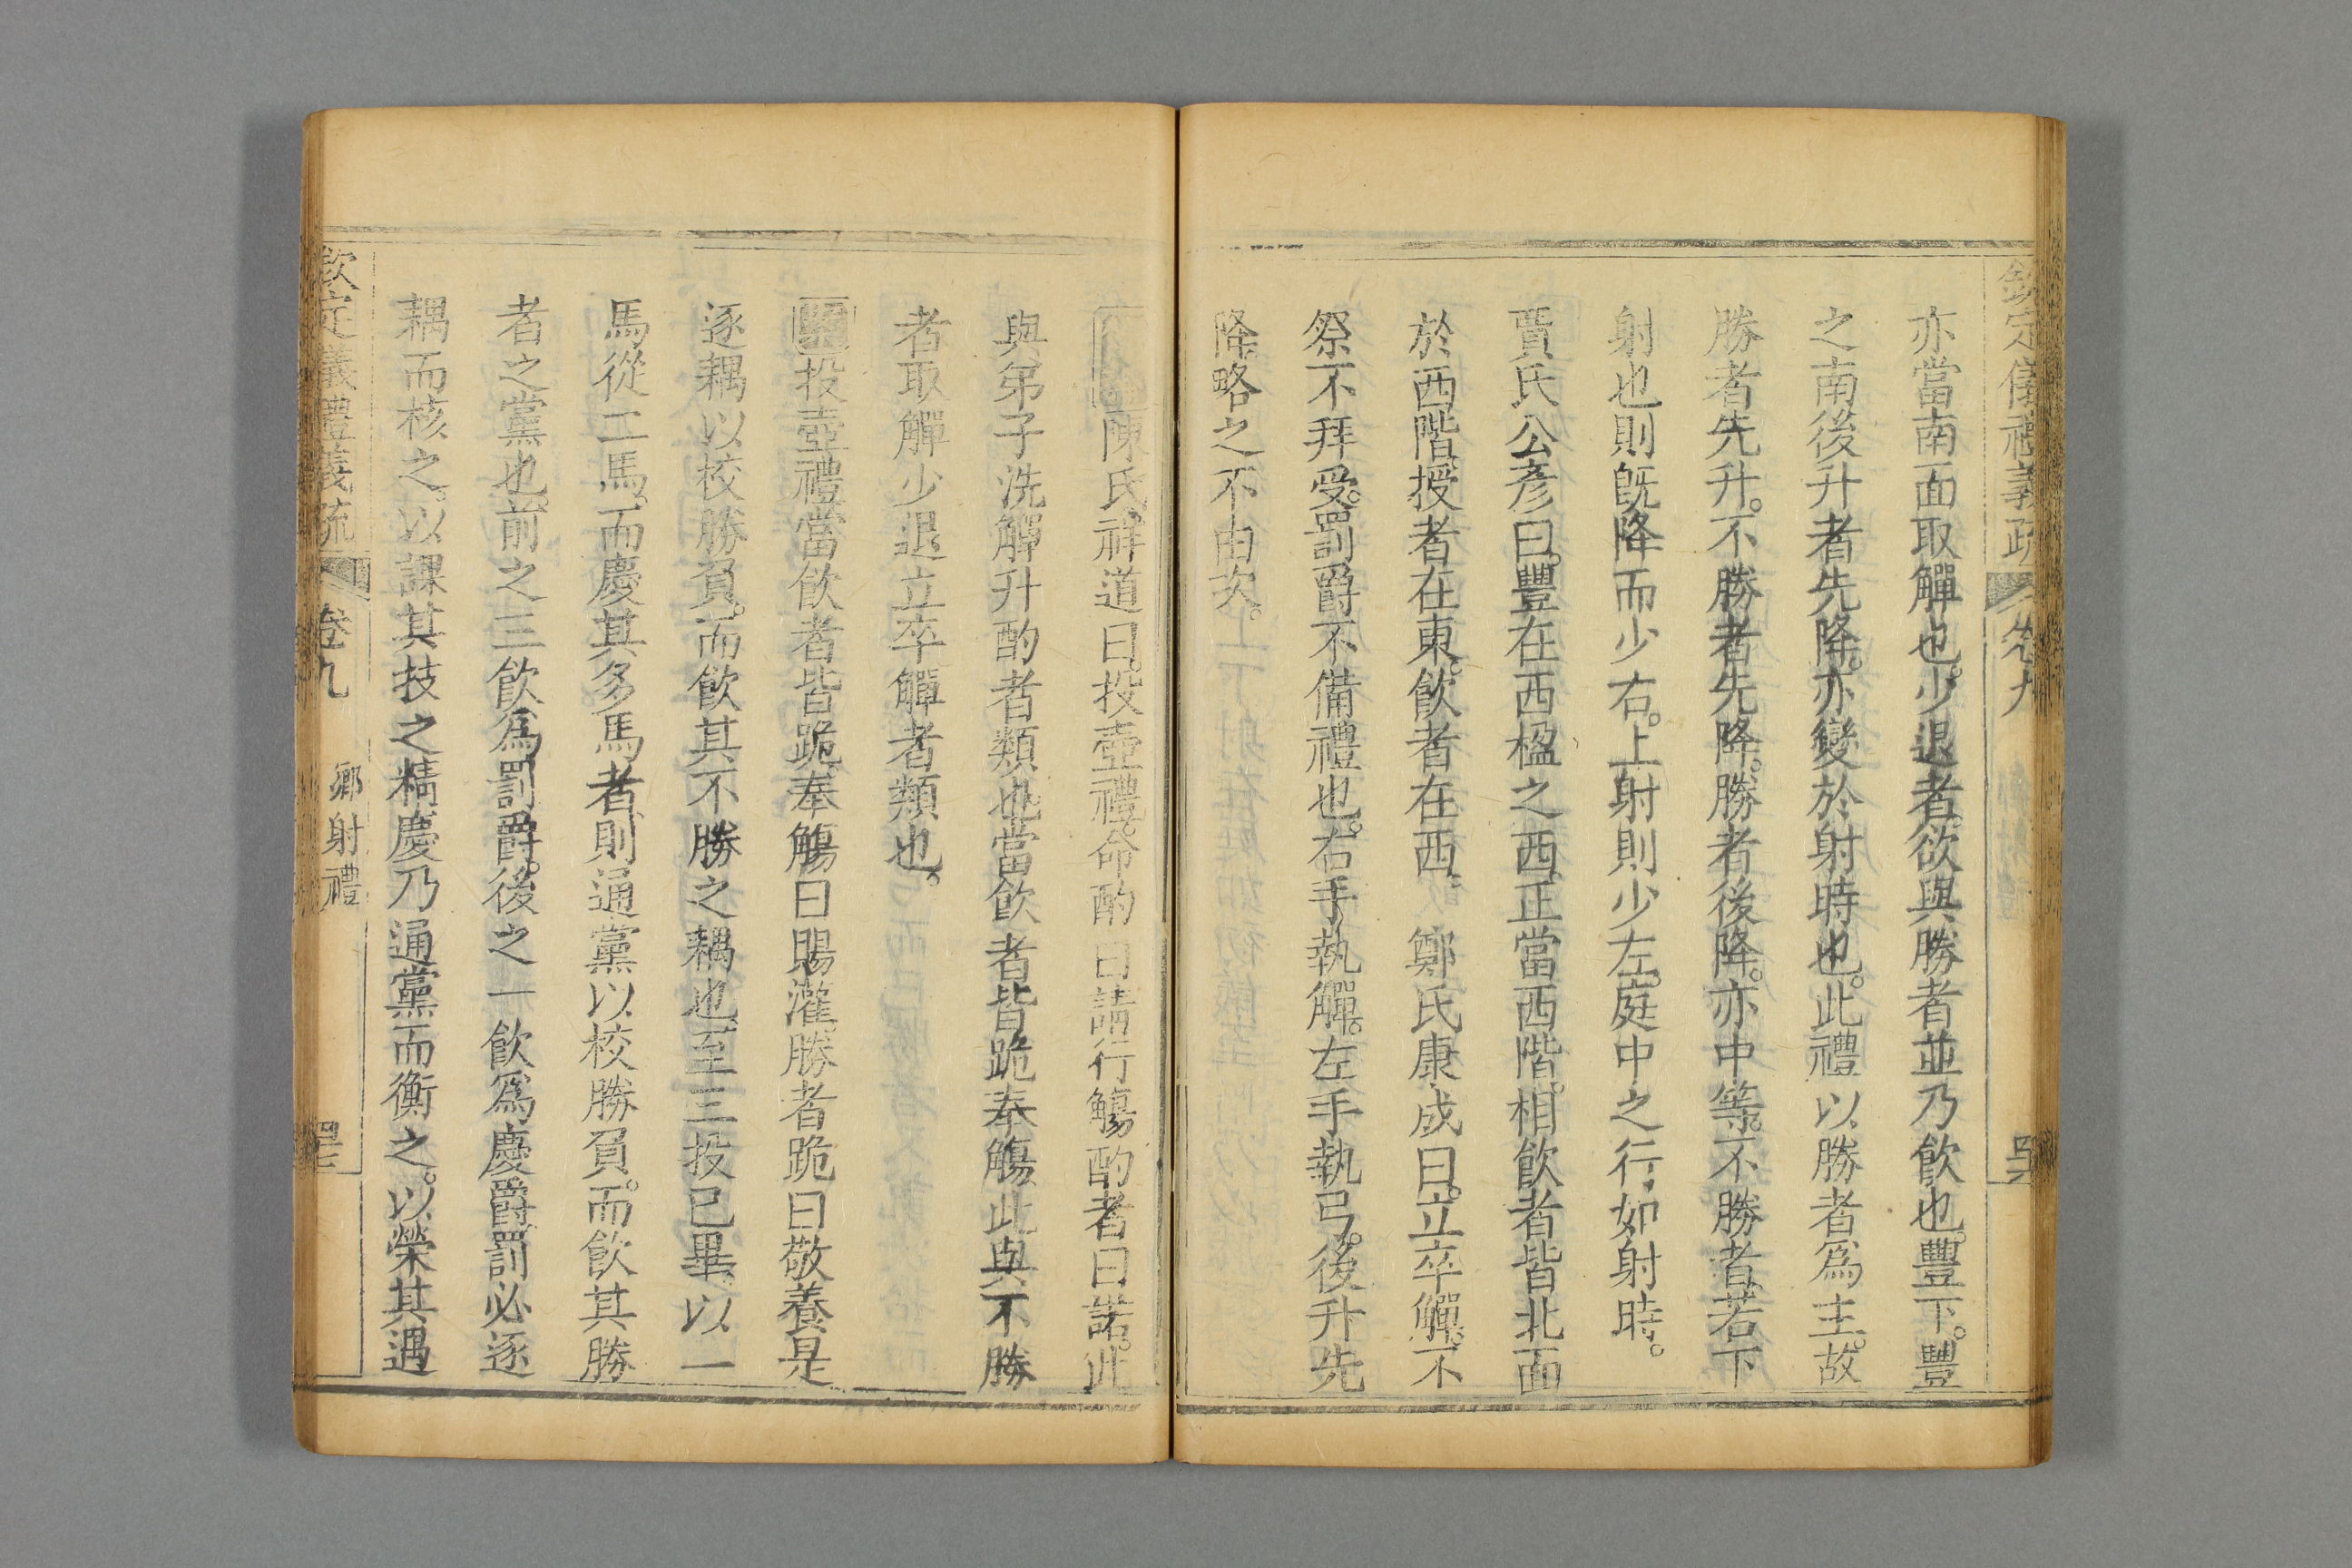 欽定儀禮義疏 卷九
亦當南面取觶也。少退者。欲與勝者並乃飲也。豐下。豐
之南後升者先降。亦變於射時也。此禮以勝者爲主。故
勝者先升。不勝者先降。勝者後降。亦中等。不勝者。若下
射也則旣降而少右。上射則少左。庭中之行。如射時。
賈氏公彥曰。豐在西楹之西。正當西階。相飲者皆北面
於西階。授者在東。飲者在西。 鄭氏康成曰。立卒觶。不
祭不拜。受罰爵不備禮也。右手執觶。左手執弓。後升先
降。略之不由次。
陳氏祥道曰。投壺禮。命酌曰請行觴。酌者曰諾。此
與弟子洗觶升酌者類也。當飲者皆跪奉觴。此與不勝
者取觶少退立卒觶者類也。
投壺禮當飲者皆跪奉觴曰賜灌勝者跪曰敬養是
逐耦以校勝負。而飲其不勝之耦也。至三投已畢。以一
馬從二馬。而慶其多馬者。則通黨以校勝負。而飲其勝
者之黨也。前之三飲爲罰爵。後之一飲爲慶爵。罰必逐
耦而核之。以課其技之精。慶乃通黨而衡之。以榮其遇
欽定儀禮義疏 卷九 鄉射禮